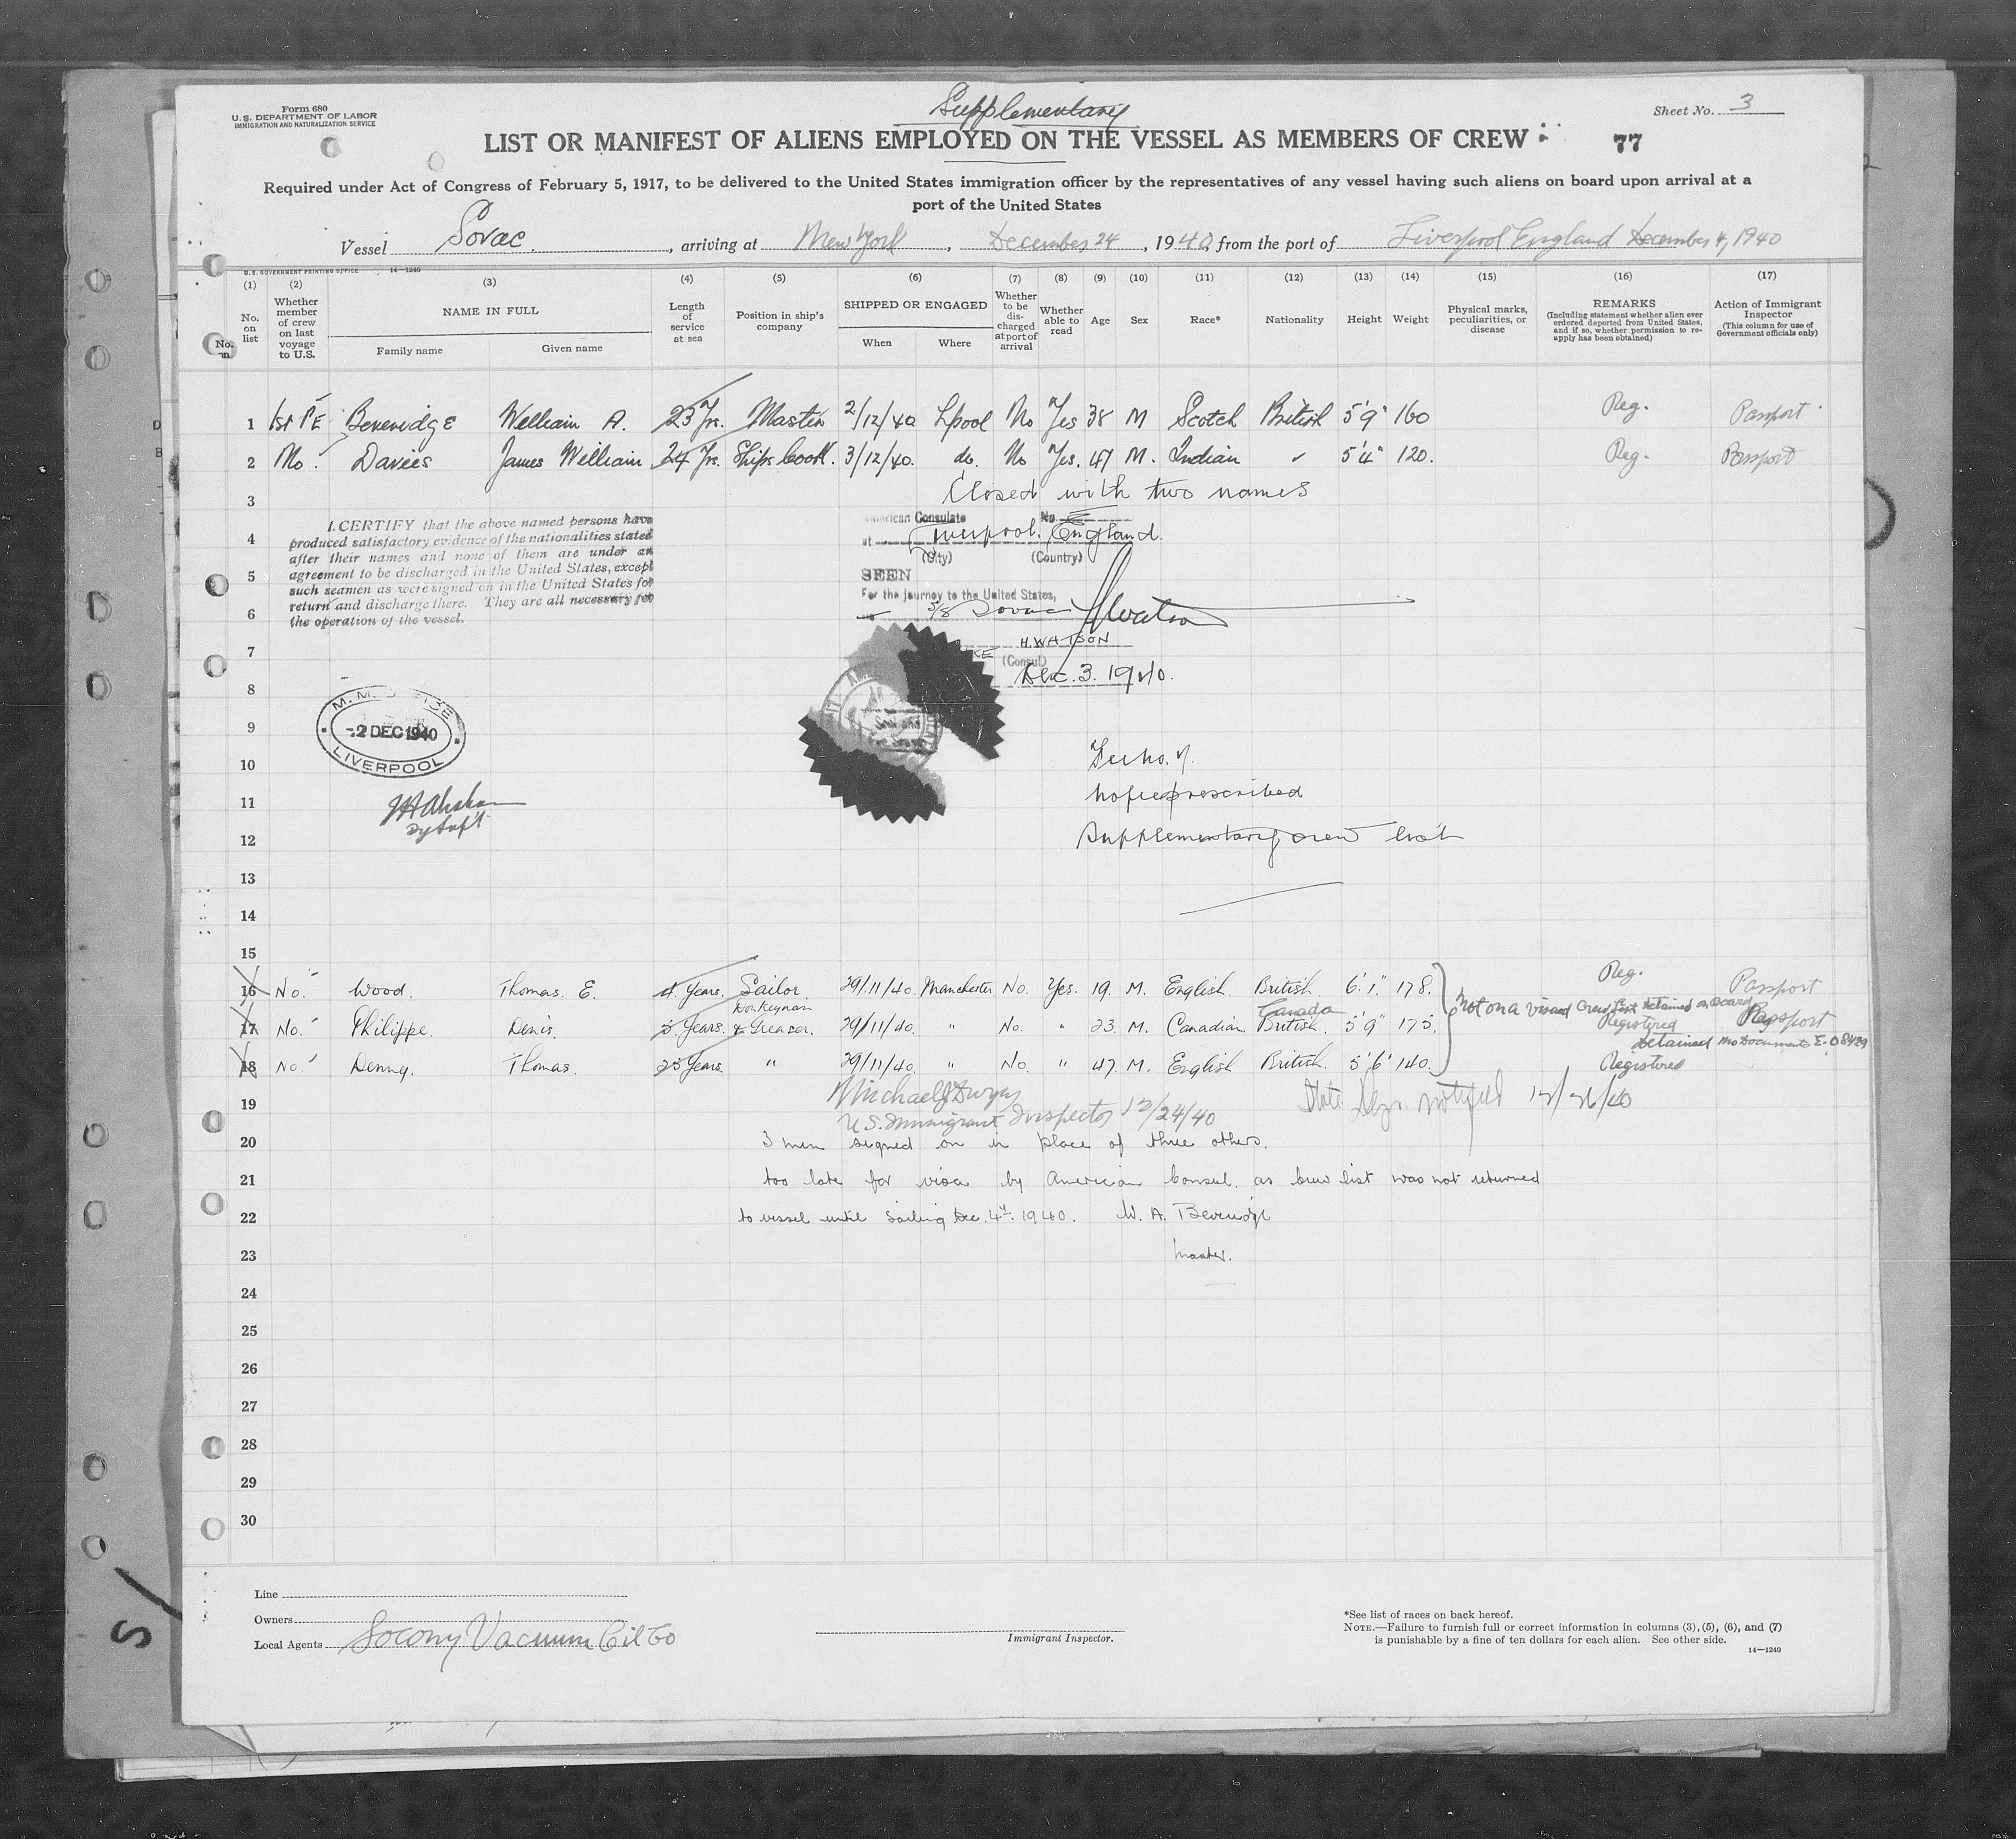 Form 680
U.S. DEPARTMENT OF LABOR
IMMIGRATION AND NATURALIZATION SERVICE
Supplementary
Sheet No. 3
LIST OR MANIFEST OF ALIENS EMPLOYED ON THE VESSEL AS MEMBERS OF CREW
77
Required under Act of Congress of February 5, 1917, to be delivered to the United States immigration officer by the representatives of any vessel having such aliens on board upon arrival at a
port of the United States
Vessel Sovac, arriving at New York, December 24, 1940, from the port of Liverpool England December 4, 1940
U.S. GOVERNMENT PRINTING OFFICE 14-1240
(1) (2) (3) (4) (5) (6) (7) (8) (9) (10) (11) (12) (13) (14) (15) (16) (17)
No. on list
Whether member of crew on last voyage to U.S.
NAME IN FULL
Family name
Given name
Length of service at sea
Position in ship's company
SHIPPED OR ENGAGED
When
Where
Whether to be discharged at port of arrival
Whether able to read
Age
Sex
Race*
Nationality
Height
Weight
Physical marks, peculiarities, or disease
REMARKS
(Including statement whether alien ever ordered deported from United States, and if so, whether permission to reapply has been obtained)
Action of Immigrant Inspector
(This column for use of Government officials only)
1 Beveridge William A. 23 Yrs. Master 2/12/40 Lpool No Yes 38 M Scotch British 5'9" 160 Reg. Passport
2 No. Davies James William 24 Yrs. Ships Cook. 3/12/40. do. No Yes. 47 M. Indian " 5'4" 120. Reg. Passport
3 Closed with two names
I CERTIFY that the above named persons have
produced satisfactory evidence of the nationalities stated
after their names and none of them are under an
agreement to be discharged in the United States, except
such seamen as were signed on in the United States for
return and discharge there. They are all necessary for
the operation of the vessel.
American Consulate No.
4 at Liverpool, England.
(City) (Country)
5 SEEN
For the journey to the United States,
6 S/S Sovac HWatson
7 H. WATSON
(Consul)
8 Dec. 3. 1940.
9
M.M. OFFICE
-2 DEC 1940
LIVERPOOL
10
11 No fee prescribed
12 Supplementary crew list
13
14
15
16 No. Wood. Thomas. E. 4 Years. Sailor. 29/11/40. Manchester No. Yes. 19. M. English. British. 6'.1". 178. Reg. Passport
Not on a Visaed Crew List Detained on Board
17 No. Philippe. Denis. 5 Years. Donkeyman & Greaser. 29/11/40. " No. " 23. M. Canadian. Canada British. 5'9" 175. Registered Passport
Detained No Documents E.08429
18 No. Denny. Thomas. 25 Years. " 29/11/40. " No. " 47. M. English British. 5'6" 140. Registered
19 Michael J Dwyer
U.S. Immigrant Inspector 12/24/40
State Dept. notified 12/26/40
20 3 men signed on in place of three others.
21 too late for visa by American Consul. as crew list was not returned
22 to vessel until sailing Dec. 4th. 1940. W. A. Beveridge
23 Master.
24
25
26
27
28
29
30
Line
Owners
Local Agents Socony Vacuum Oil Co
Immigrant Inspector.
*See list of races on back hereof.
NOTE.—Failure to furnish full or correct information in columns (3), (5), (6), and (7)
is punishable by a fine of ten dollars for each alien. See other side.
14—1240